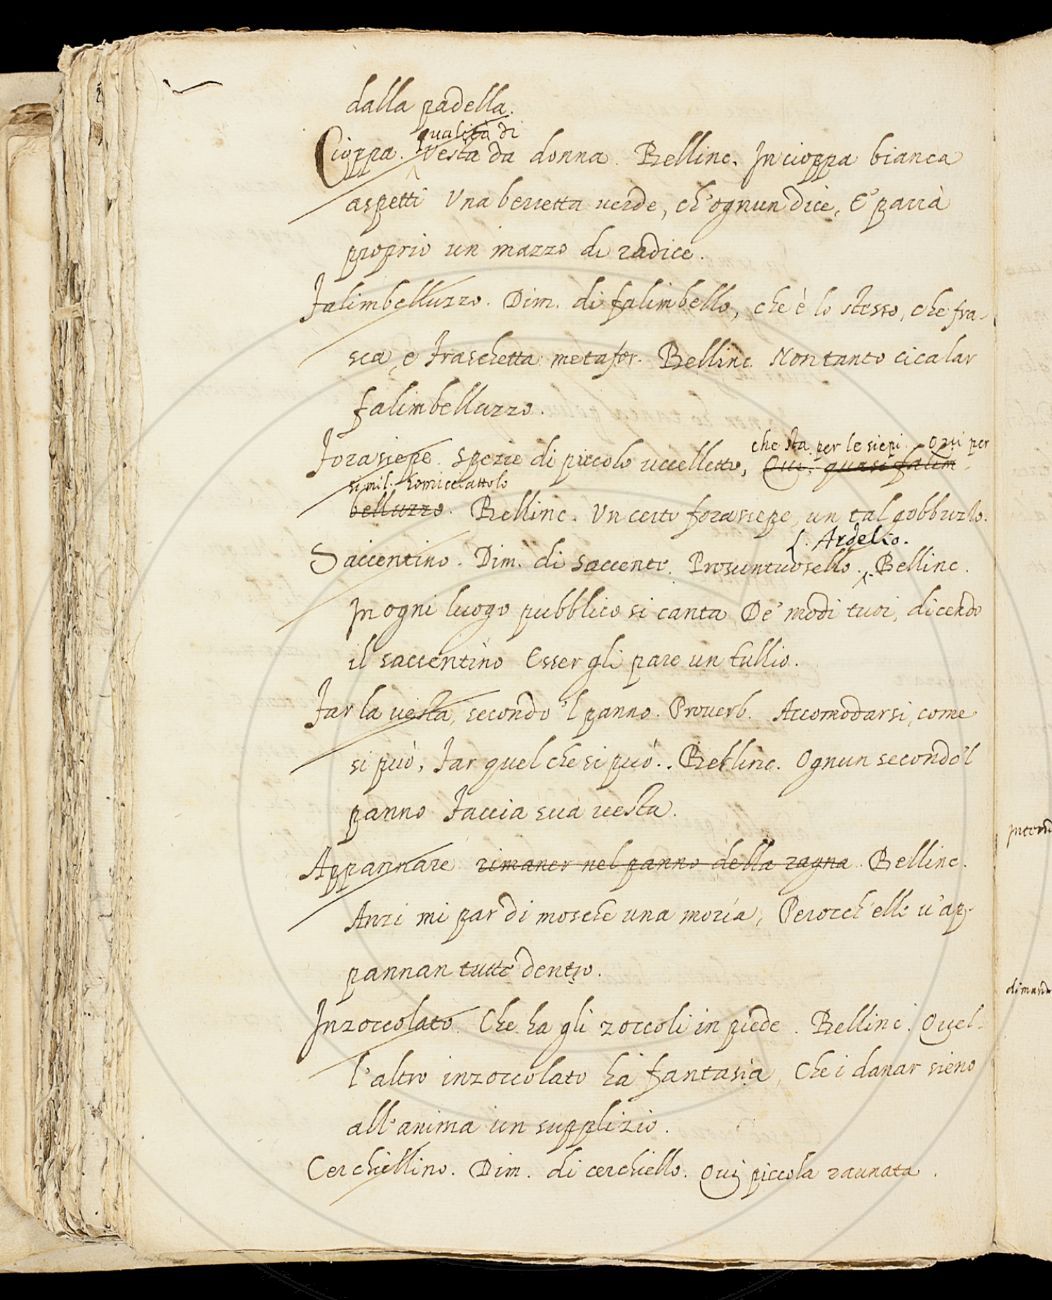 dalla padella.
qualità di
Cioppa. Vesta da donna. Bellinc. In cioppa bianca
aspetti Una berretta verde, ch'ognun dice, E' parrà
proprio un mazzo di radice.
Falimbelluzzo. Dim. di falimbello, che è lo stesso, che fra-
sca, e fraschetta metafor. Bellinc. Non tanto cicalar
falimbelluzzo.
che sta per le siepi. Qui per
Forasiepe. Spezie di piccolo uccelletto, Qui. quasi falim
simil. homicciattolo
belluzzo. Bellinc. Un certo forasiepe, un tal gobbuzlo.
L. Ardelio.
Saccentino. Dim. di saccente. Prosuntuosello. Bellinc.
In ogni luogo pubblico si canta De' modi tuoi, dicendo
il saccentino Esser gli pare un tullio.
Far la vesta, secondo 'l panno. Proverb. Accomodarsi, come
si può, Far quel che si può. Bellinc. Ognun secondo 'l
panno Faccia sua vesta.
Appannare rimaner nel panno della ragna. Bellinc.
Anzi mi par di mosche una moría, Perocch'elle v'ap-
pannan tutte dentro.
Inzoccolato. Che ha gli zoccoli in piede. Bellinc. Quel-
l'altro inzoccolato ha fantasia, Che i danar sieno
all'anima un supplizio.
Cerchiellino. Dim. di cerchiello. Qui piccola raunata.